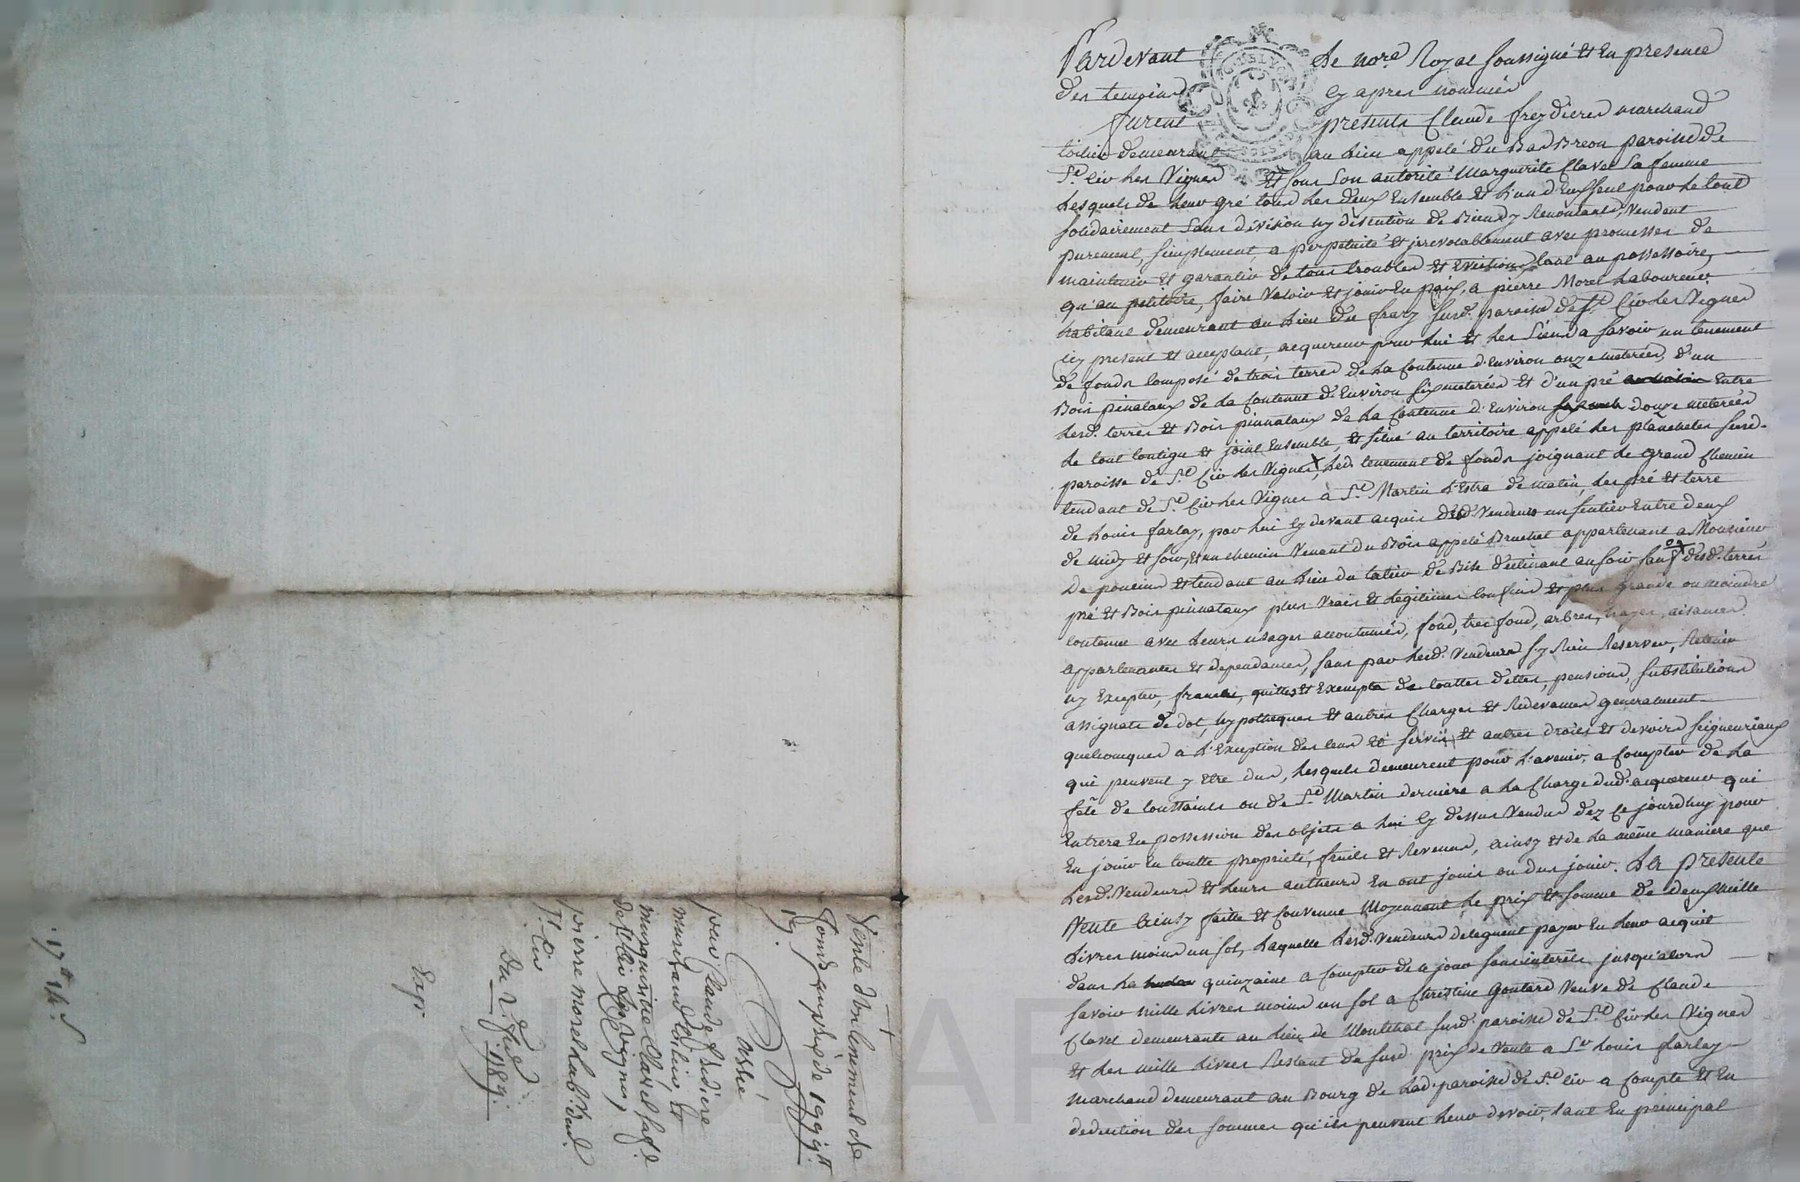 Pardevant Le nore. Royal soussigné et En presence
des temoins Cy apres nommés
furent présents Claude freydiere marchand
toilier demeurant au Lieu appelé du Bas Breon paroisse de
St. Cir Les Vignes Et sous son autorité Marguerite Clavel Sa femme
Lesquels de Leur gré tous Les deux Ensemble et L'un d'Eux seul pour Le tout
solidairement Sans division ny discution de Biens y Renonçants, Vendent
purement, simplement, a perpetuité et irrevocablement avec promesses de
maintenir et garantir de tous troubles et Evictions tant au possessoire,
qu'au petitoire, faire Valoir et jouir En paix, a pierre Morel Laboureur
habitant demeurant au Lieu du susd. paroisse de St. Cir Les Vignes
icy present et acceptant, acquereur pour Lui et Les Siens a savoir un tenement
de fonds composé de trois terres de La Contenue d'Environ onze meterées, d'un
Bois pinataux de La Contenue d'Environ six meterées et d'un pré Entre
Lesd. terres et Bois pinnataux de La Contenue d'Environ douze meterées
Le tout contigu et joint Ensemble, et situé au territoire appelé Les planchettes susd.
paroisse de St. Cir Les Vignes, Led. tenement de fonds joignant Le grand chemin
tendant de St. Cir Les Vignes à St. Martin L'Estra de matin, Les pré et terre
de Louis farlay, par Lui Cy devant acquis desd. Vendeurs un sentier Entre deux
de midy et soir, et un chemin Venant du Bois appelé Bruchet appartenant a Monsieur
De poncins et tendant au Lieu du de Bise declinant au soir sauf desd. terres
pré et Bois pinnataux plus Vrais et Legitimes confins et plus grande ou moindre
contenue avec Leurs usages accoutumés, fond, tres fond, arbres, hayes, aisances
appartenances et dependances, sans par Lesd. Vendeurs s'y Rien Reserver, Retenir
ny Excepter, francs, quittes et Exempts de touttes dettes, pensions, substitutions
assignats de dot, hypotheques et autres Charges et Redevances generalement
quelconques a L'Exception des cens et servis et autres droits et devoirs seigneuriaux
qui peuvent y Etre dus, Lesquels demeurent pour L'avenir, a compter de La
fête de toussaints ou de St. Martin derniere a La Charge dud. acquereur qui
Entrera En possession des objets a Lui Cy dessus Vendus dez Ce jourdhuy pour
En jouir En toutte propriété, fruits et Revenus, ainsy et de La même maniere que
Lesd. Vendeurs et Leurs autheurs En ont joui ou dus jouir. La presente
Vente ainsy faitte et convenue Moyennant Le prix et somme de deux mille
Livres moins un sol, Laquelle Lesd. Vendeurs deleguent payer En Leur acquit
dans La quinzaine a compter de ce jour sans interêts jusqu'alors
savoir mille Livres moins un sol a Christine Goutard Veuve de Claude
Clavel demeurante au Lieu de Montchal susd. paroisse de St. Cir Les Vignes
et Les mille Livres Restant du susd. prix de Vente a Sr. Louis farlay
marchand demeurant au Bourg de Lad. paroisse de St. Cir a Compte et En
deduction des sommes qu'ils peuvent Leur devoir, tant En principal
Vente d'un tenement de
fonds au prix de 1999 lt
19 s.
Passée
par Claude freidiere
marchand toilier et
marguerite Clavel sa fe.
de St. Cir Les Vignes,
a pierre morel lab. dud.
St. Cir
Du 2 1789.
Expé